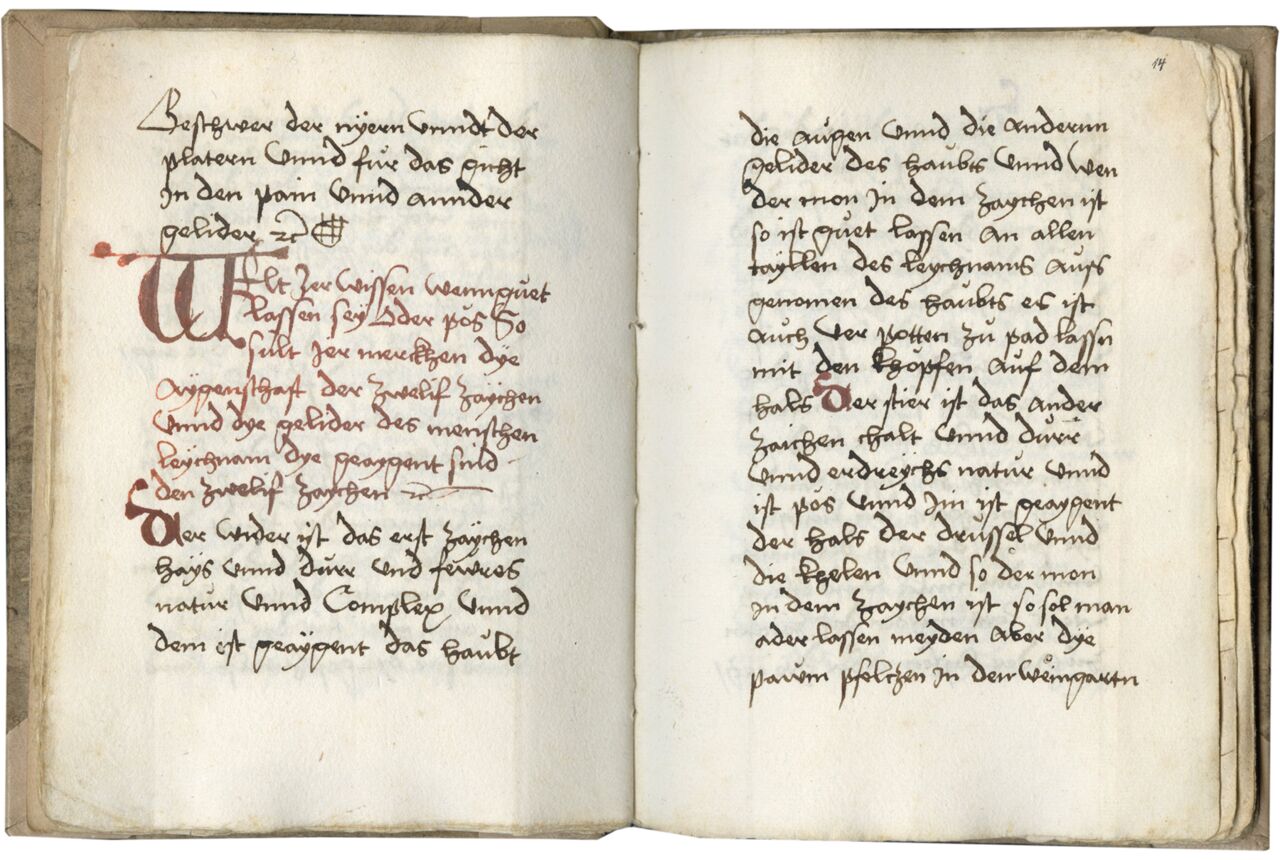 Beschwer der nÿern vnndt der
platern vnnd für das gicht
in den pain vnnd annder
gelider ꝛc
Welt Jer wissen wenn guet
lassen seÿ oder pös So
sült Jer merckhen dÿe
Aÿgenschaft der zwelif zaÿchen
vnnd dÿe gelider des menschen
leÿchnam dÿe geaÿgent sind
den zwelif zaÿchen ꝛc
der wider ist das erst zaÿchen
haÿs vnnd dürr vnd fewres
natür vnnd Complex vnnd
dem ist geaÿgent das haübt
14
die aügen vnnd die andernn
gelider des haübts vnnd wen
der mon in dem zaÿchen ist
so ist güet lassen an allen
taÿllen des leÿchnams aüss
genomen des haübts es ist
aüch ver potten zü pad lassn
mit den khöpfen aüf dem
hals der stier ist das ander
zaichen chalt vnnd dürr
vnnd erdreÿchs natür vnnd
ist pös vnnd im ist geaÿgent
der hals der drüssel vnnd
die khelen vnnd so der mon
in dem zaÿchen ist so sol man
ader lassen meÿden aber dÿe
pawm pfelczen in den weingartn